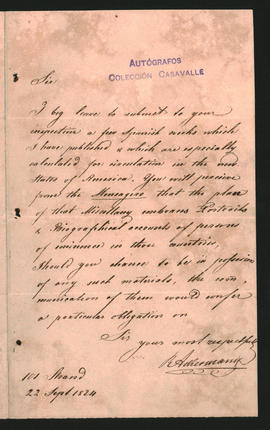 AUTÓGRAFOS
COLECCIÓN CASAVALLE
Sir
I beg leave to submit to your
inspection a few Spanish works which
I have published & which are especially
calculated for circulation in the new
States of America. You will perceive
from the Mensagero that the plan
of that Miscellany embraces Portraits
& Biographical accounts of persons
of eminence in those countries,
Should you chance to be in possession
of any such materials, the com
munication of them would confer
a particular obligation on
Sir
your most respectful
R Ackermann
101 Strand
22 Sept 1824